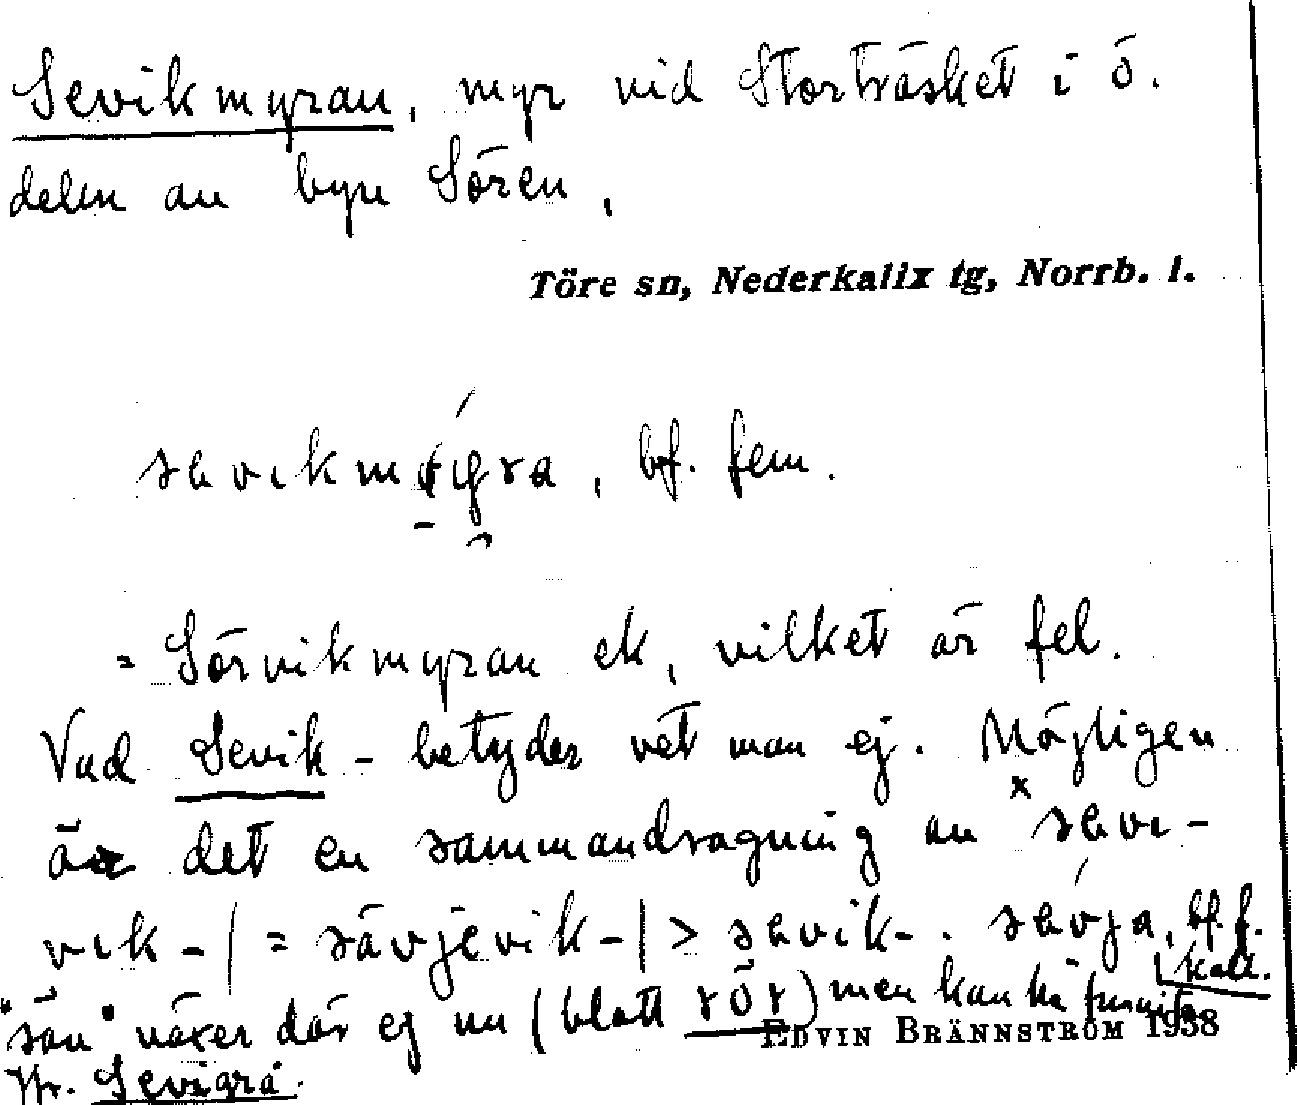 Sevikmyran, myr vid Storträsket i ö.
delen av byn Sören.
Töre sn, Nederkalix tg, Norrb. l.
bf. fem.
= Sörvikmyran ek, vilket är fel.
Vad Sevik- betyder vet man ej. Möjligen
är det en sammandragning av
= sävjevik-| > bf. f.
"säv" växer där ej nu (blott rör) men kan ha funnits
EDVIN BRÄNNSTRÖM 1938
Jfr. Sevigrä.